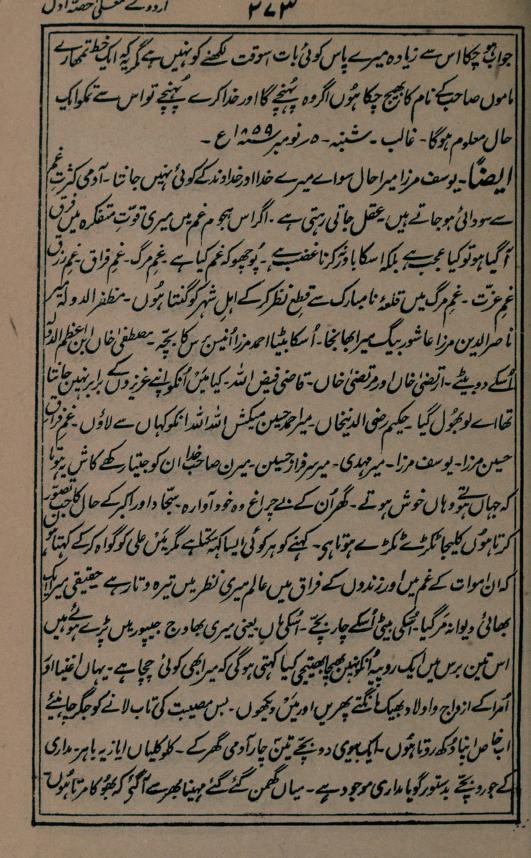 اردوے معلیٰ حصۂ اول ۲۷۳
جواب ہو چکا اس سے زیادہ میرے پاس کوئی بات اسوقت لکھنے کو نہیں ہے مگر یہ کہ ایک خط تمھارے
ماموں صاحب کے نام کا بھیج چکا ہوں اگر وہ پہنچے گا اور خدا کرے پہنچے تو اس سے تمکو ایک
حال معلوم ہوگا۔ غالب۔ شنبہ۔ ۵ نومبر ۱۸۵۹ع۔
ایضاً۔ یوسف مرزا میرا حال سواے میرے خدا اور خداوند کے کوئی نہیں جانتا۔ آدمی کثرت غم
سے سودائی ہو جاتے ہیں۔ عقل جاتی رہتی ہے۔ اگر اس ہجوم غم میں میری قوت متفکرہ میں فرق
آگیا ہو تو کیا عجب ہے بلکہ اسکا باور نکرنا غضب ہے۔ پوچھو کہ غم کیا ہے غم مرگ۔ غم فراق۔ غم رزق
غم عزت۔ غم مرگ میں قلعۂ نامبارک سے قطع نظر کر کے اہل شہر کو گنتا ہوں۔ مظفر الدولہ۔ میر
ناصر الدین مرزا عاشور بیگ میرا بھانجا۔ اُسکا بیٹا احمد مرزا انیس برس کا بچہ۔ مصطفیٰ خاں ابن اعظم الدولہ
اُسکے دو بیٹے۔ ارتضیٰ خاں اور مرتضیٰ خاں۔ قاضی فیض اللہ۔ کیا میں اُنکو اپنے عزیزوں کے برابر نہیں جانتا
تھا اے لو بھول گیا حکیم رضی الدینخاں۔ میر احمد حسین میکش اللہ اللہ انکو کہاں سے لاؤں۔ غم فراق
حسین مرزا۔ یوسف مرزا۔ میر مہدی۔ میر سرفراز حسین۔ میرن صاحب خدا ان کو جیتا رکھے کاش یہ ہوتا
کہ جہاں ہوتے وہاں خوش ہوتے۔ گھر اُن کے بے چراغ وہ خود آوارہ سجاد اور اکبر کے حال کا جب تصور
کرتا ہوں کلیجا ٹکڑے ٹکڑے ہوتا ہی۔ کہنے کو ہر کوئی ایسا کہہ سکتا ہے مگر میں علی کو گواہ کر کے کہتا ہوں
کہ ان اموات کے غم میں اور زندوں کے فراق میں عالم میری نظر میں تیرہ و تار ہے حقیقی میرا ایک
بھائی دیوانہ مر گیا۔ اُسکی بیٹی اُسکے چار بچے۔ اُسکی ماں یعنی میری بھاوج جیپور میں پڑے ہوے ہیں
اس تین برس میں ایک روپیہ اُنکو نہیں بھیجا بھتیجی کیا کہتی ہوگی کہ میرا بھی کوئی چچا ہے۔ یہاں اغنیا اور
اُمرا کے ازواج و اولاد بھیک مانگتے پھریں اور میں دیکھوں۔ بس مصیبت کی تاب لانے کو جگر چاہیئے
اب خاص اپنا دکھ روتا ہوں۔ ایک بیوی دو بچے تین چار آدمی گھر کے۔ کلو کلیان ایاز یہ باہر۔ مداری
کے جورو بچے بدستور گویا مداری موجود ہے۔ میاں گھمن گئے گئے مہینا بھر سے آگئے کہ بھوکا مرتا ہوں